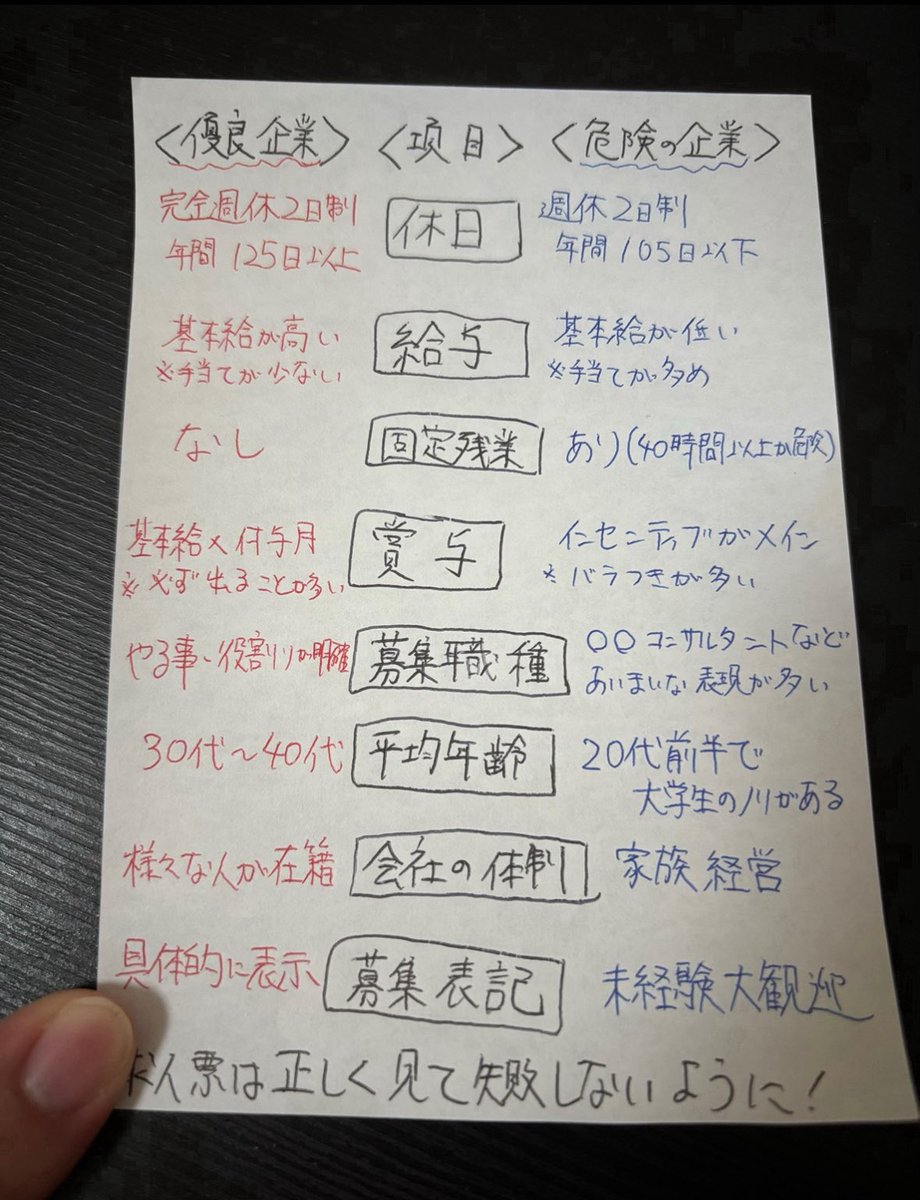 <優良企業> <項目> <危険の企業>
完全週休2日制 休日 週休2日制
年間125日以上 年間105日以下
基本給が高い 給与 基本給が低い
※手当てが少ない ※手当てが多め
なし 固定残業 あり(40時間以上が危険)
基本給×付与月 賞与 インセンティブがメイン
※必ず出ることが多い ※バラつきが多い
やる事・役割りが明確 募集職種 〇〇コンサルタントなど
あいまいな表現が多い
30代~40代 平均年齢 20代前半で
大学生のノリがある
様々な人が在籍 会社の体制 家族経営
具体的に表示 募集表記 未経験大観迎
求人票は正しく見て失敗しないように!